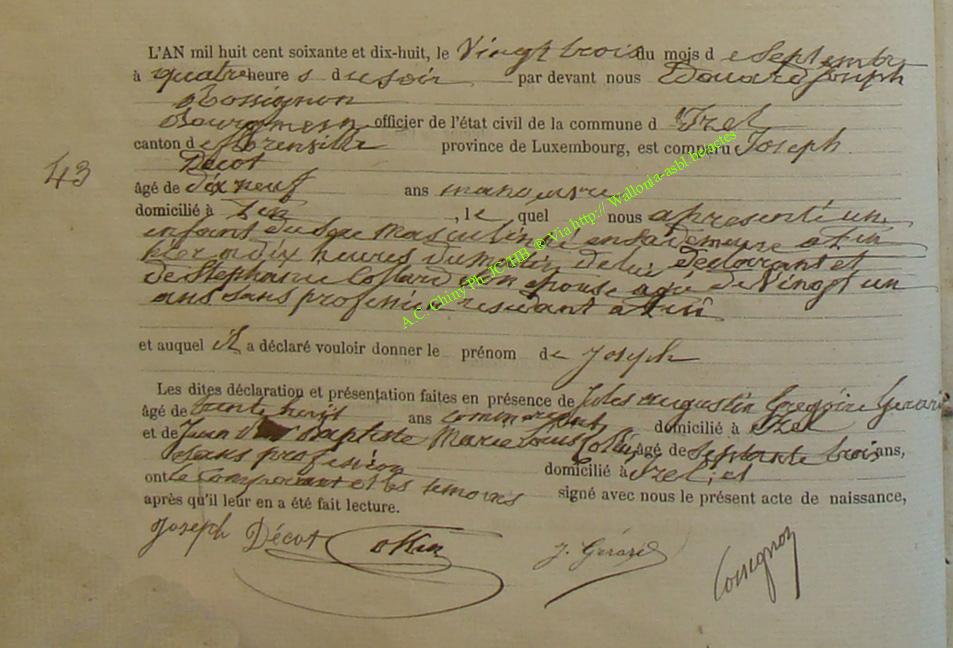 L'AN mil huit cent soixante et dix-huit, le Vingt trois du mois d e Septembre
à quatre heure s du soir par devant nous Edouard Joseph
Rossignon
Bourgmestre officier de l'état civil de la commune d Izel
canton d e Florenville province de Luxembourg, est comparu Joseph
Décot
43
âgé de dix neuf ans manœuvre
domicilié à , le quel nous a présenté un
enfant du sexe masculin né en sa demeure à
hier à dix heures du matin de lui déclarant et
de Stéphanie Collard son épouse agée de Vingt un
ans sans profession résidant à
et auquel il a déclaré vouloir donner le prénom de Joseph
Les dites déclaration et présentation faites en présence de Jules Augustin Grégoire Gérard
âgé de trente huit ans commerçant domicilié à Izel
et de Jean Baptiste Marie Louis âgé de Septante trois ans,
sans profession domicilié à Izel, et
ont le Comparant et les temoins signé avec nous le présent acte de naissance,
après qu'il leur en a été fait lecture.
Joseph Décot J. Gérard Rossignon
A.C. Chiny Ph JC HB ® Via http:// Wallonia-asbl.be/actes